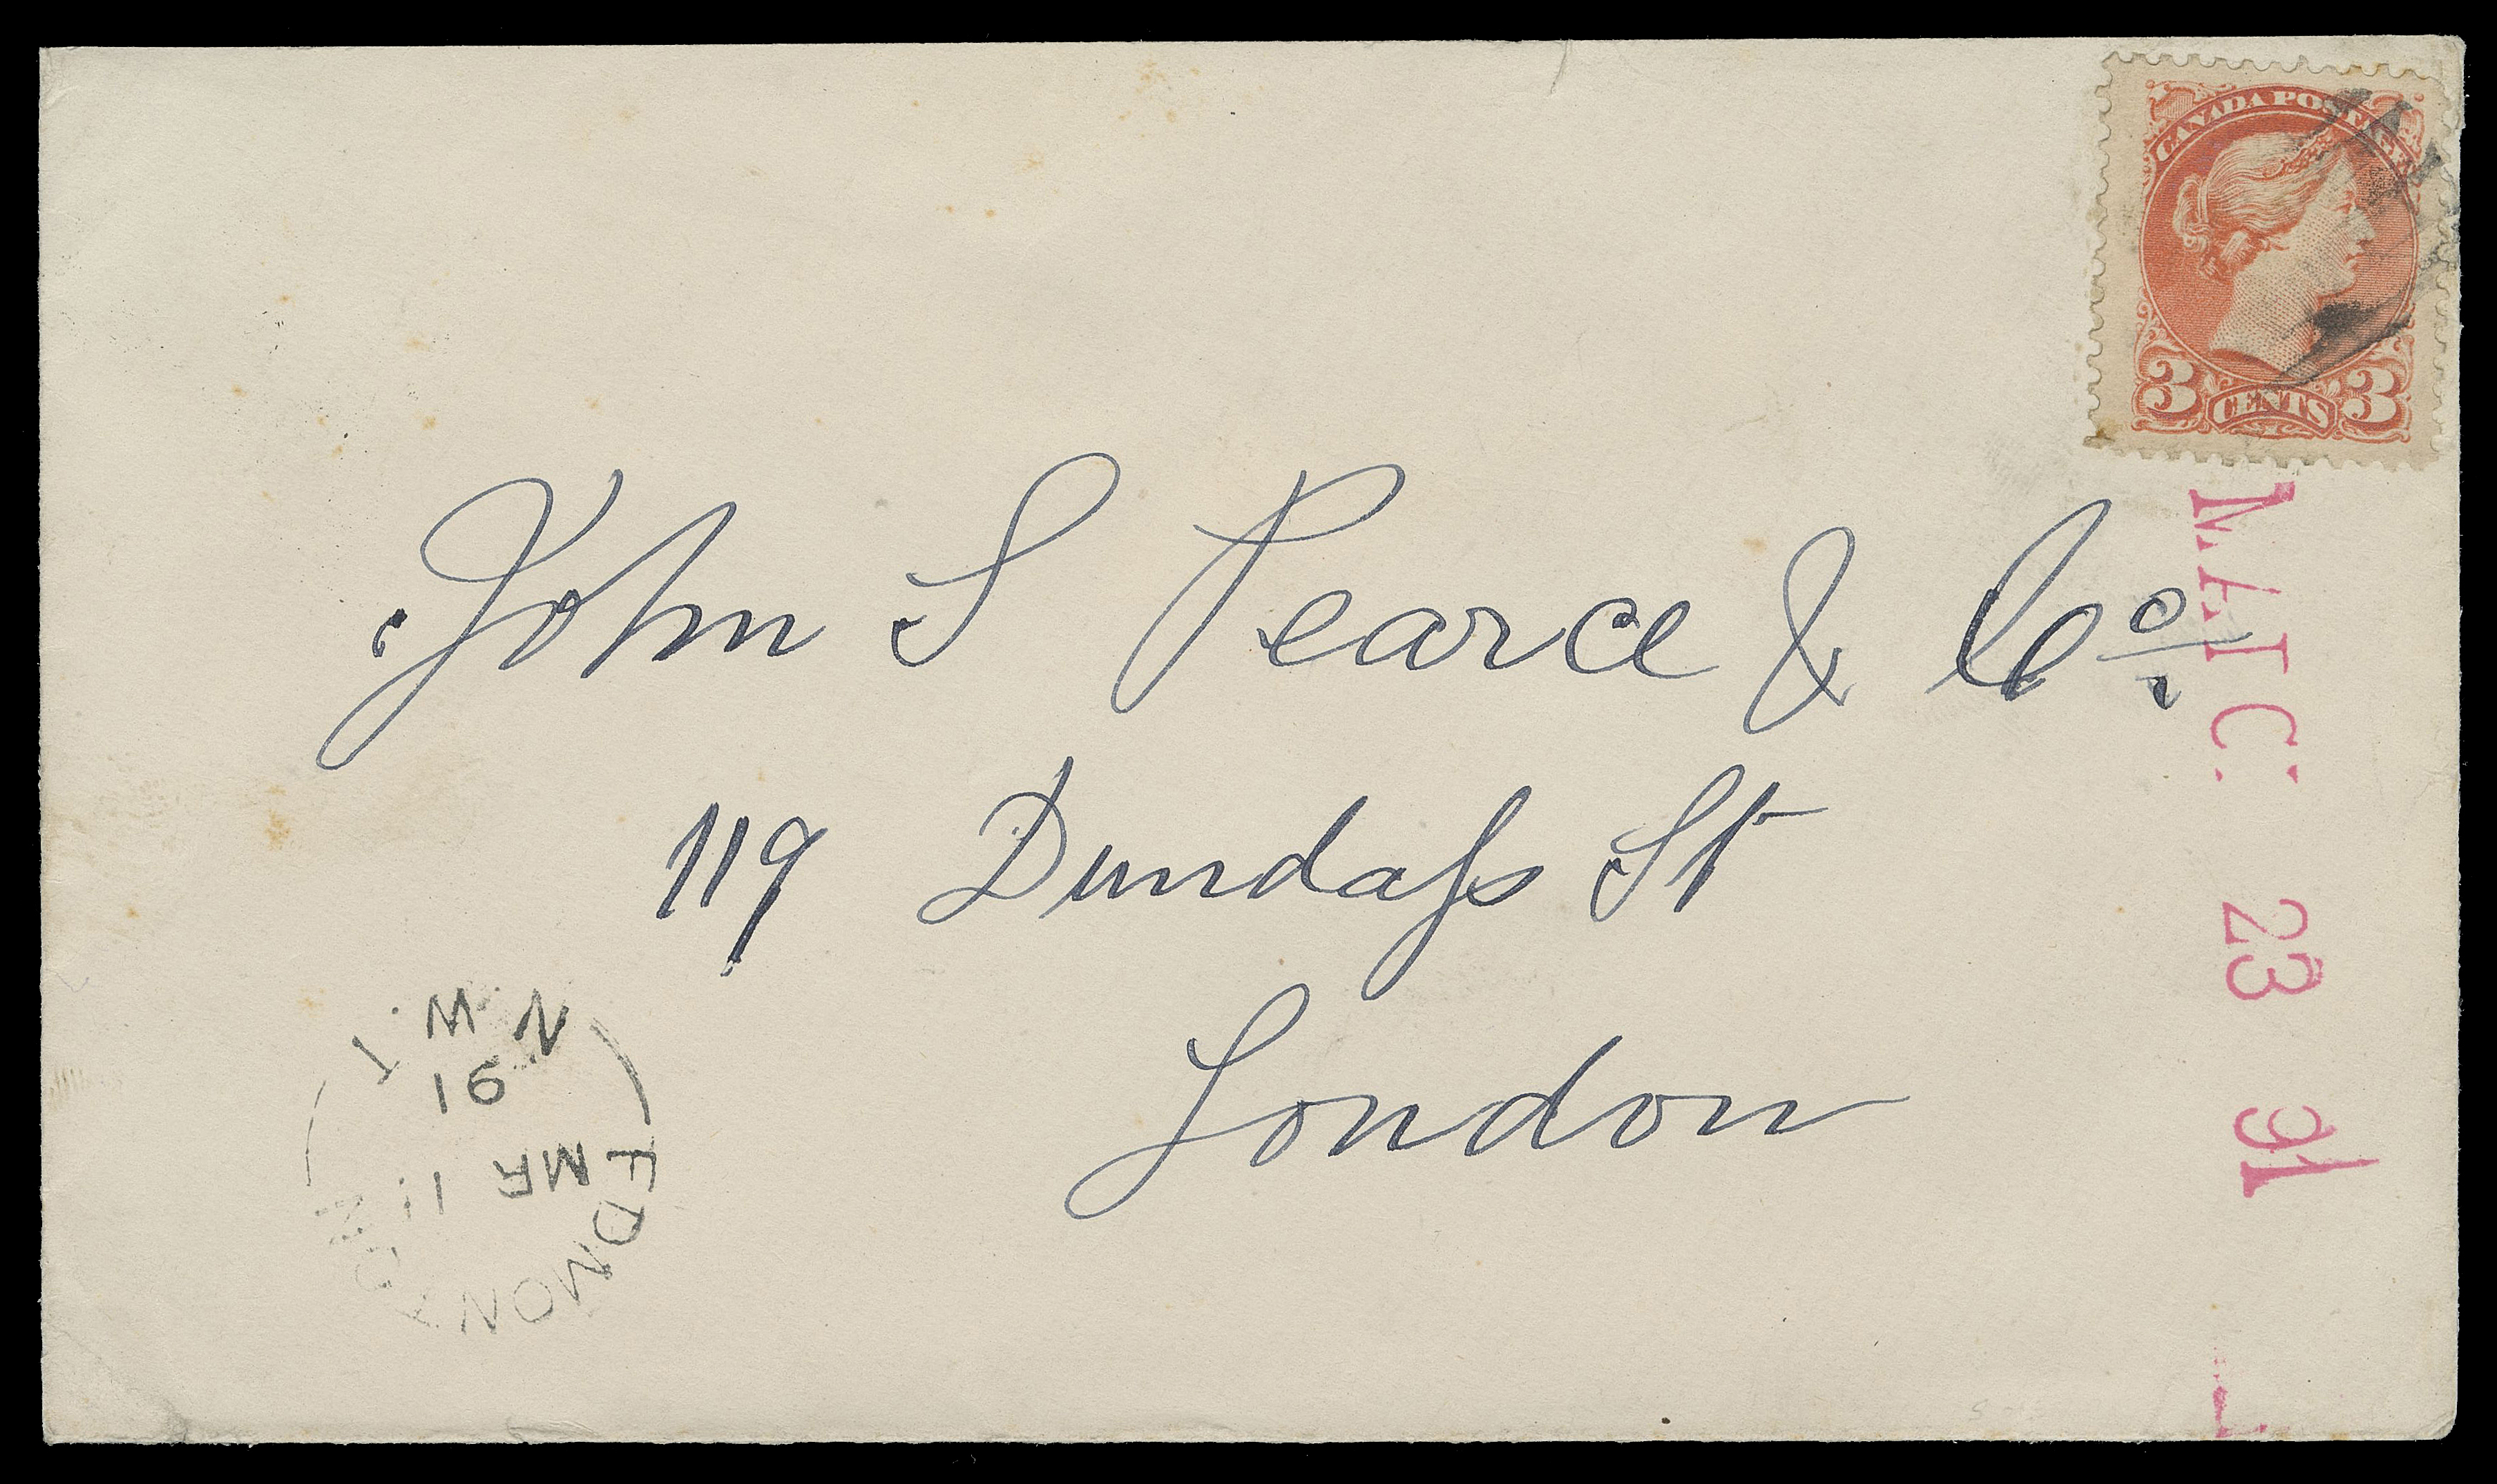 CANADA POSTAGE
3 CENTS 3
John S Pearce & Co.
119 Dundass St
London
23 91
EDMONTON
MR 11
91
N.W.T